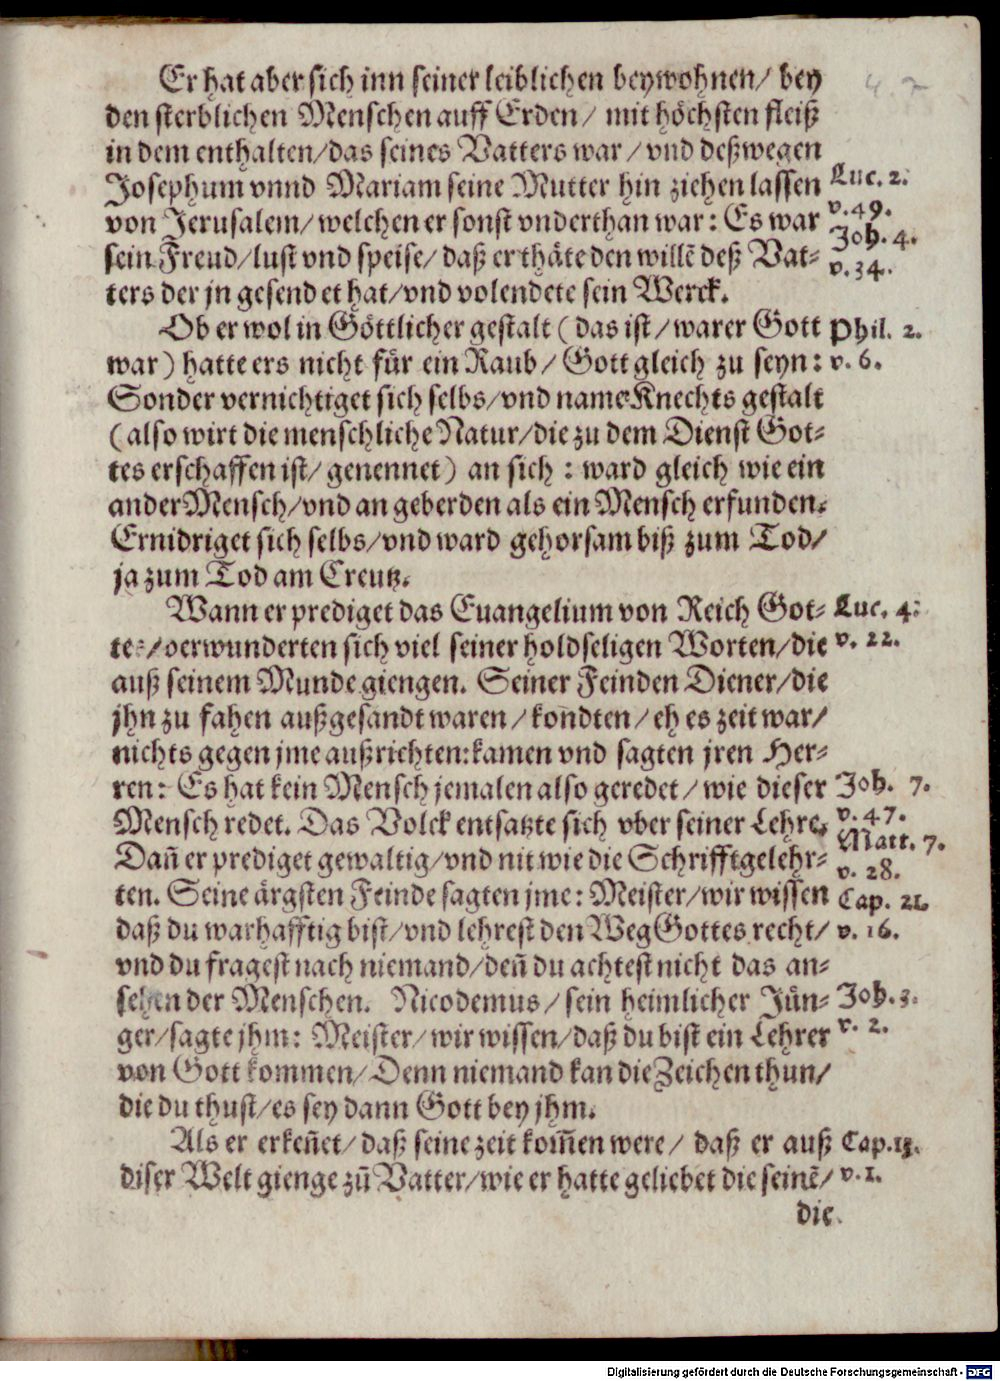 Er hat aber sich inn seiner leiblichen beywohnen/ bey
den sterblichen Menschen auff Erden/ mit höchsten fleiß
in dem enthalten/das seines Vatters war/vnd deßwegen
Josephum vnnd Mariam seine Mutter hin ziehen lassen Luc. 2.
v. 49.
von Jerusalem/welchen er sonst vnderthan war: Es war
Joh. 4.
sein Freud/lust vnd speise/ daß er thäte den willẽ deß Vat-
v. 34.
ters der jn gesendet hat/vnd volendete sein Werck.
Ob er wol in Göttlicher gestalt (das ist/warer Gott Phil. 2.
war) hatte ers nicht für ein Raub/ Gott gleich zu seyn: v. 6.
Sonder vernichtiget sich selbs/vnd name Knechts gestalt
(also wirt die menschliche Natur/die zu dem Dienst Got-
tes erschaffen ist/ genennet) an sich: ward gleich wie ein
ander Mensch/vnd an geberden als ein Mensch erfunden.
Ernidriget sich selbs/vnd ward gehorsam biß zum Tod/
ja zum Tod am Creutz.
Wann er prediget das Euangelium von Reich Got- Luc. 4.
tes/verwunderten sich viel seiner holdseligen Worten/die v. 22.
auß seinem Munde giengen. Seiner Feinden Diener/die
jhn zu fahen außgesandt waren/kondten/eh es zeit war/
nichts gegen jme außrichten: kamen vnd sagten jren Her-
ren: Es hat kein Mensch jemalen also geredet/wie dieser Joh. 7.
v. 47.
Mensch redet. Das Volck entsatzte sich vber seiner Lehre,
Matt. 7.
Dañ er prediget gewaltig/vnd nit wie die Schrifftgelehr-
v. 28.
ten. Seine ärgsten Feinde sagten jme: Meister/wir wissen Cap. 22.
daß du warhafftig bist/vnd lehrest den Weg Gottes recht/ v. 16.
vnd du fragest nach niemand/deñ du achtest nicht das an-
sehen der Menschen. Nicodemus/ sein heimlicher Jün- Joh. 3.
ger/sagte jhm: Meister/wir wissen/daß du bist ein Lehrer v. 2.
von Gott kommen/Denn niemand kan die Zeichen thun/
die du thust/es sey dann Gott bey jhm.
Als er erkeñet/daß seine zeit kom̃en were/ daß er auß Cap. 13.
diser Welt gienge zũ Vatter/wie er hatte geliebet die seinẽ/ v. 1.
die
Digitalisierung gefördert durch die Deutsche Forschungsgemeinschaft - DFG